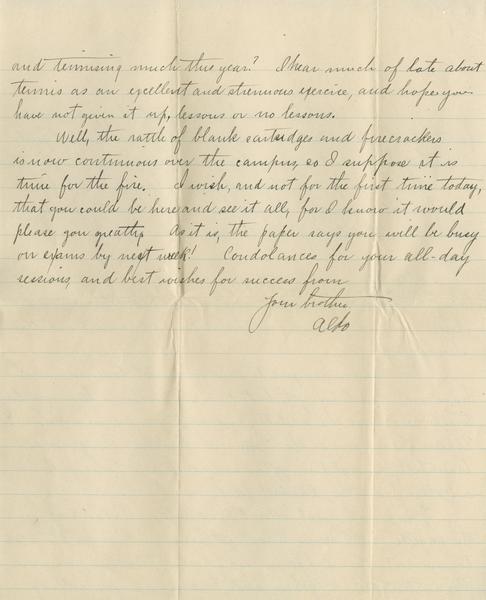 and tennising much this year? I hear much of late about
tennis as an excellent and strenuous exercise, and hope you
have not given it up, lessons or no lessons.
Well, the rattle of blank cartridges and firecrackers
is now continuous over the campus, so I suppose it is
time for the fire. I wish, and not for the first time today,
that you could be here and see it all, for I know it would
please you greatly. As it is, the paper says you will be busy
on exams by next week! Condolances for your all-day
sessions, and best wishes for success from
Your brother
Aldo